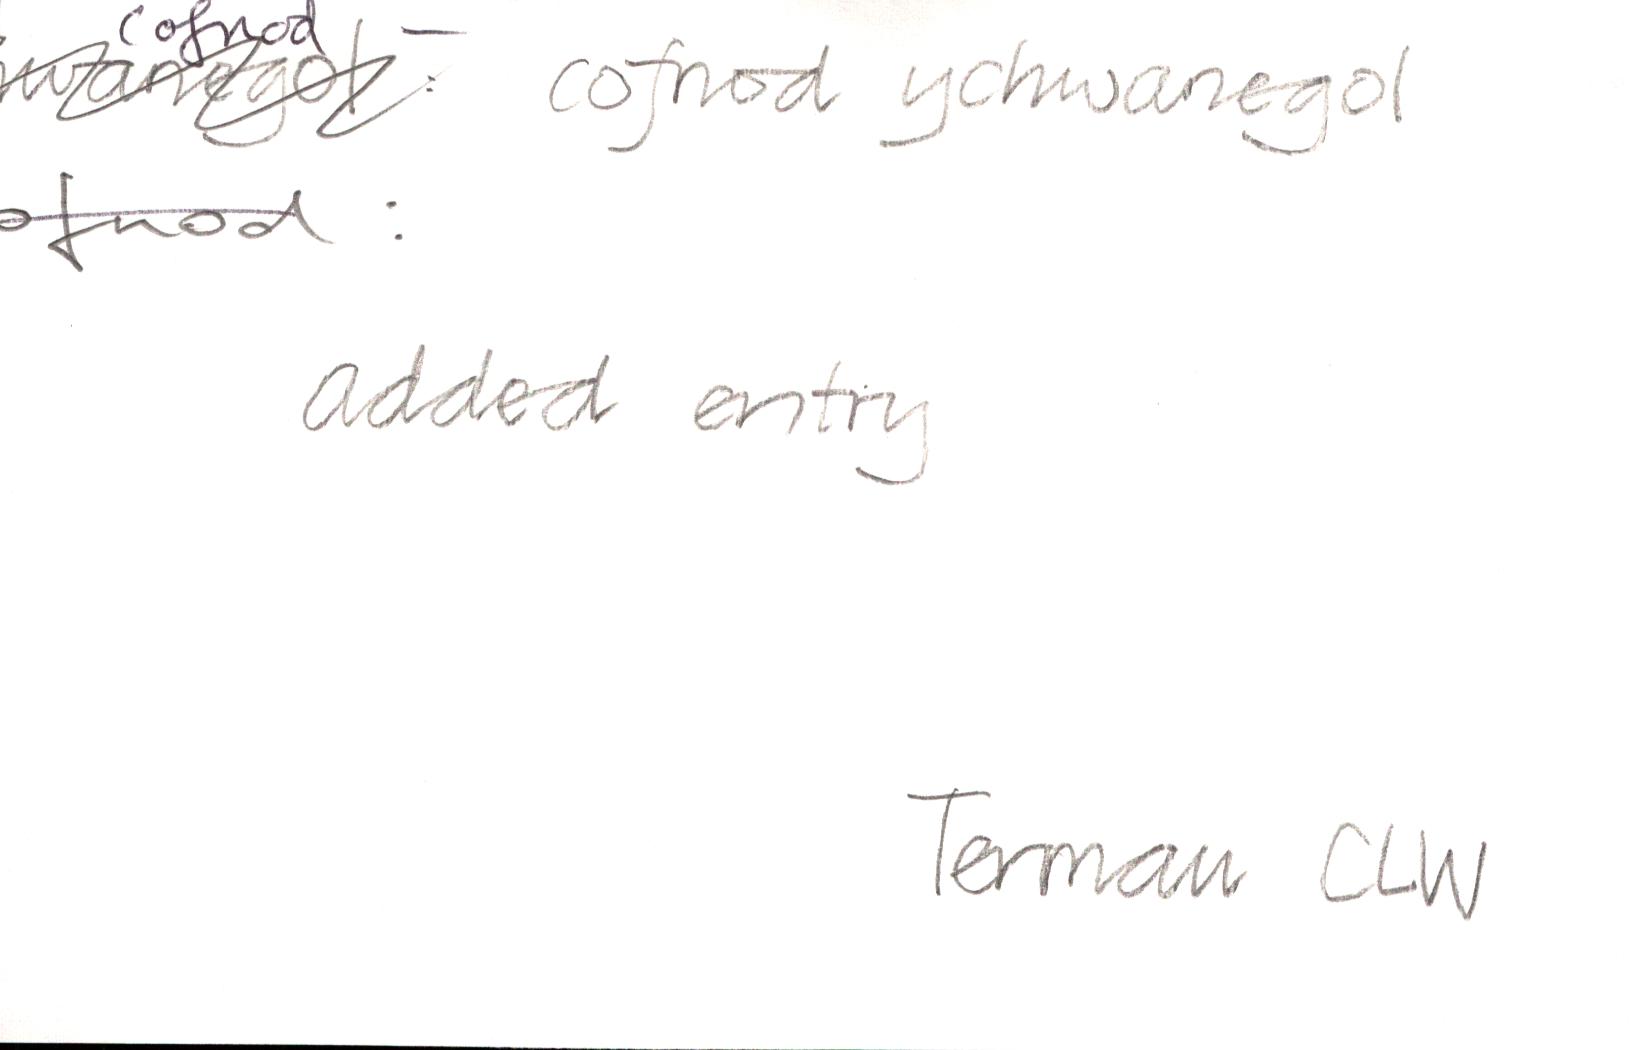 cofnod –
wanegol: cofnod ychwanegol
ofnod :
added entry
Termau CLW